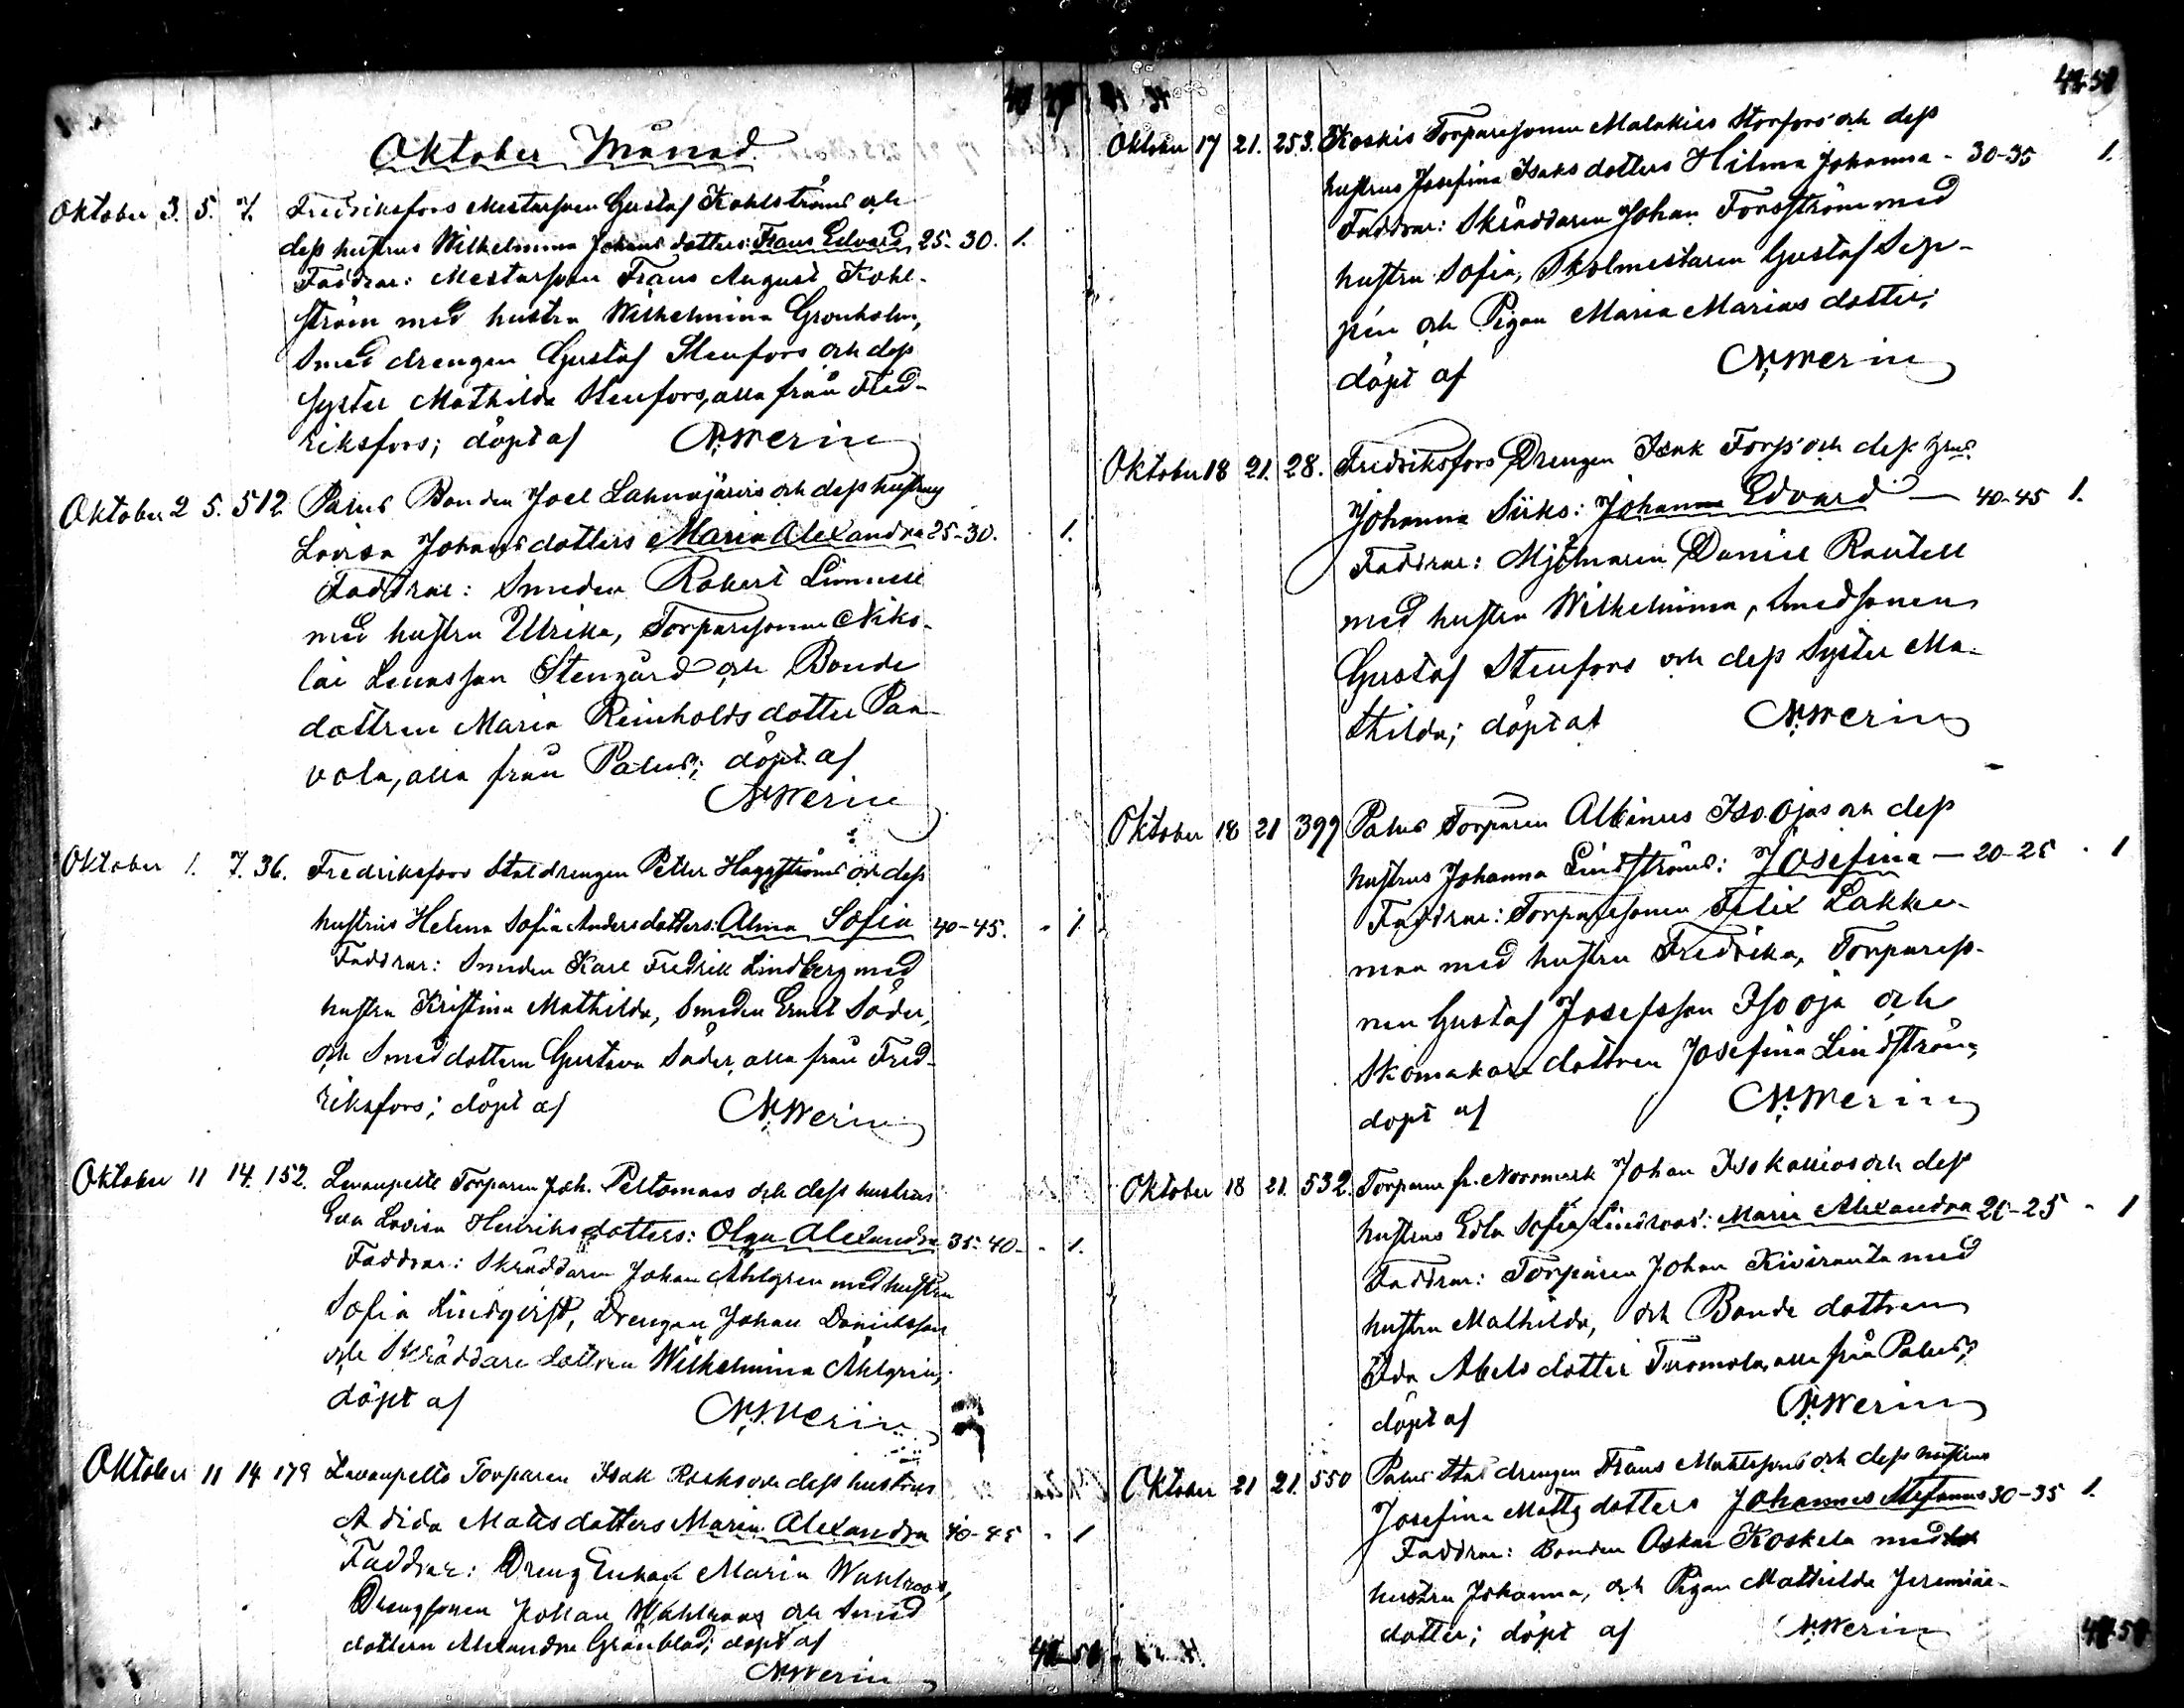 Oktober Månad.
Oktober 3. 5. 7. Fredriksfors Mestarsven Gustaf Kohlströms och
dess hustrus Wilhelmina Johansdotters: Frans Edvard 25-30. 1.
Faddrar: Mestarsven Frans August Kohl-
ström med hustru Wilhelmina Grönholm,
Smed drengen Gustaf Stenfors och dess
Syster Mathilda Stenfors, alla från Fred-
riksfors; döpt af N. Merin
Oktober 2 5. 512 Palus Bonden Joel Lahnajärvis och dess hustrus
Lovisa Johans dotters Maria Alexandra 25-30. 1.
Faddrar: Smeden Robert
med hustru Ulrika, Torparesonen Niko-
lai Stengård och Bonde
dottren Maria Reinholds dotter Paa-
vola, alla från Palus; döpt af
N. Merin
Oktober 1. 7. 36. Fredriksfors Staldrengen Petter Häggströms och dess
hustrus Helena Sofia Andersdotters: Alma Sofia 40-45. " 1.
Faddrar: Smeden Karl Fredrik Lindberg med
hustru Kristina Mathilda, Smeden Ernst Söder,
och Smed dottern Gustava Söder, alla från Fred-
riksfors; döpt af N. Merin
Oktober 11 14. 152. Levanpelto Torparen Joh. Peltomaas och dess hustrus
Eva Lovisa Henriksdotters: Olga Alexandra 35-40- " 1.
Faddrar: Skräddaren Johan Ahlgren med hustru
Sofia Lindqvist, Drengen Johan Danielsson
och Skräddare dottren Wilhelmina Ahlgren;
döpt af N. Merin
Oktober 11 14 179 Levanpelto Torparen Isak och dess hustrus
Adida Matts dotters Maria Alexandra 40-45 " 1
Faddrar: Dreng Enkan Maria Wahlroos,
Drengsonen Johan Wahlroos och Smed
dottern Alexandra Grönblad; döpt af
N. Merin
Oktober 17 21. 253. Koskis Torparesonen Malakias Storfors och dess
hustrus Josefina Isaks dotters Hilma Johanna - 30-35 1.
Faddrar: Skräddaren Johan Forsström med
hustru Sofia, Skolmestaren Gustaf Sep-
pén och Pigan Maria Marias dotter;
döpt af N. Merin
Oktober 18 21. 28. Fredriksfors Drengen Isak Forss och dess hrus
Johanna Siiks: Johan Edvard — 40-45 1.
Faddrar: Mjölnaren Daniel Rautell
med hustru Wilhelmina, Smedsonen
Gustaf Stenfors och dess Syster Ma-
thilda; döpt af N. Merin
Oktober 18 21 399 Palus Torparen Albinus Iso-ojas och dess
hustrus Johanna Lindströms: Josefina — 20-25 " 1
Faddrar: Torparesonen Felix Lakka-
maa med hustru Fredrika, Torpareso-
nen Gustaf Josefsson Iso oja och
Skomakare dottren Josefina Lindström;
döpt af N. Merin
Oktober 18 21. 532. Torparen fr. Norrmark Johan Isokallios och dess
hustrus Edla Sofia Lindroos: Maria Alexandra 20-25 " 1
Faddrar: Torparen Johan Kiviranta med
hustru Mathilda, och Bonde dottren
Ida Abels dotter Tuomola, alla från Palus;
döpt af N. Merin
Oktober 21 21. 550 Palus Staldrengen Frans Mattssons och dess hustrus
Josefina Matts dotters Johannes Stefanus 30-35 1.
Faddrar: Bonden Oskar Koskela med
hustru Johanna, och Pigan Mathilda Jeremiae-
dotter; döpt af N. Merin